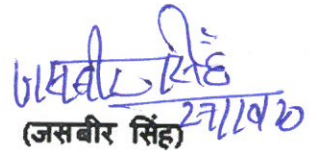 जसबीर सिंह
(जसबीर सिंह)